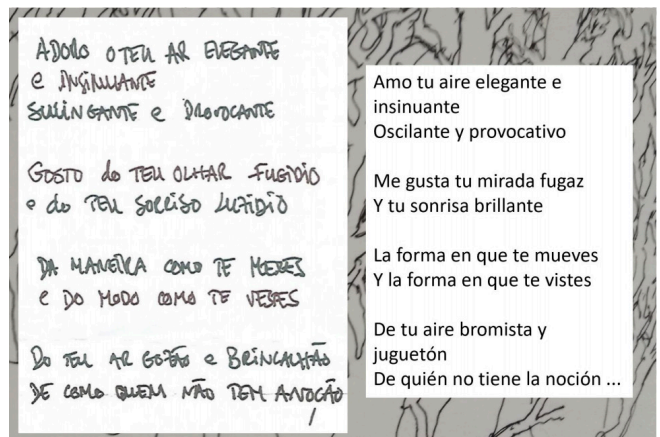 ADORO O TEU AR ELEGANTE
e INSINUANTE
SWINGANTE e PROVOCANTE
GOSTO do TEU OLHAR FUGIDIO
e do TEU SORRISO LUZIDIO
DA MANEIRA COMO TE MEXES
e DO MODO COMO TE VESTES
DO TEU AR GOZÃO e BRINCALHÃO
DE COMO QUEM NÃO TEM A NOÇÃO
Amo tu aire elegante e
insinuante
Oscilante y provocativo
Me gusta tu mirada fugaz
Y tu sonrisa brillante
La forma en que te mueves
Y la forma en que te vistes
De tu aire bromista y
juguetón
De quién no tiene la noción ...